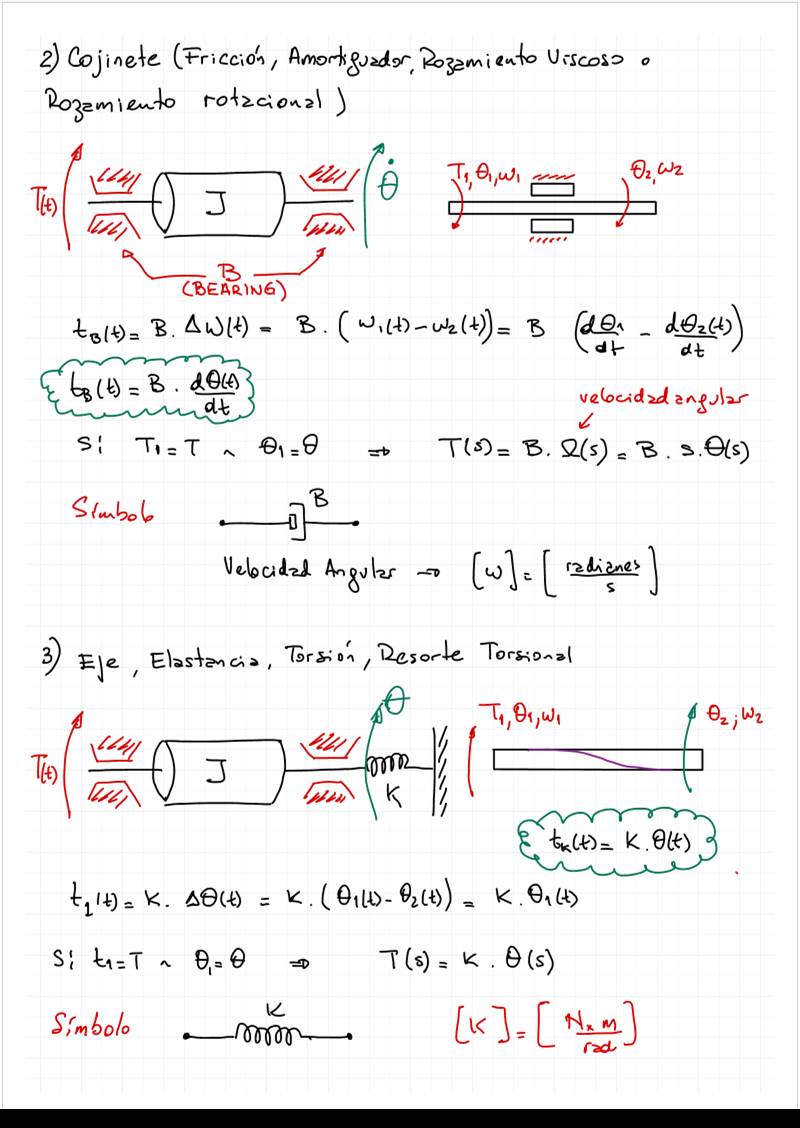 2) Cojinete (Fricción, Amortiguador, Rozamiento Viscoso o
Rozamiento rotacional)
T(t) J θ̇ T₁, θ₁, ω₁ θ₂, ω₂
B
(BEARING)
t_B(t) = B. Δω(t) = B. (ω₁(t) - ω₂(t)) = B (dθ₁/dt - dθ₂(t)/dt)
t_B(t) = B. dθ(t)/dt
velocidad angular
Si T₁ = T ^ θ₁ = θ ⇒ T(s) = B. Ω(s) = B. s. θ(s)
Símbolo B
Velocidad Angular → [ω] = [radianes/s]
3) Eje, Elastancia, Torsión, Resorte Torsional
T(t) J θ K T₁, θ₁, ω₁ θ₂; ω₂
t_K(t) = K. θ(t)
t₁(t) = K. Δθ(t) = K. (θ₁(t) - θ₂(t)) = K. θ₁(t)
Si t₁ = T ^ θ₁ = θ ⇒ T(s) = K. θ(s)
Símbolo K [K] = [N x m/rad]